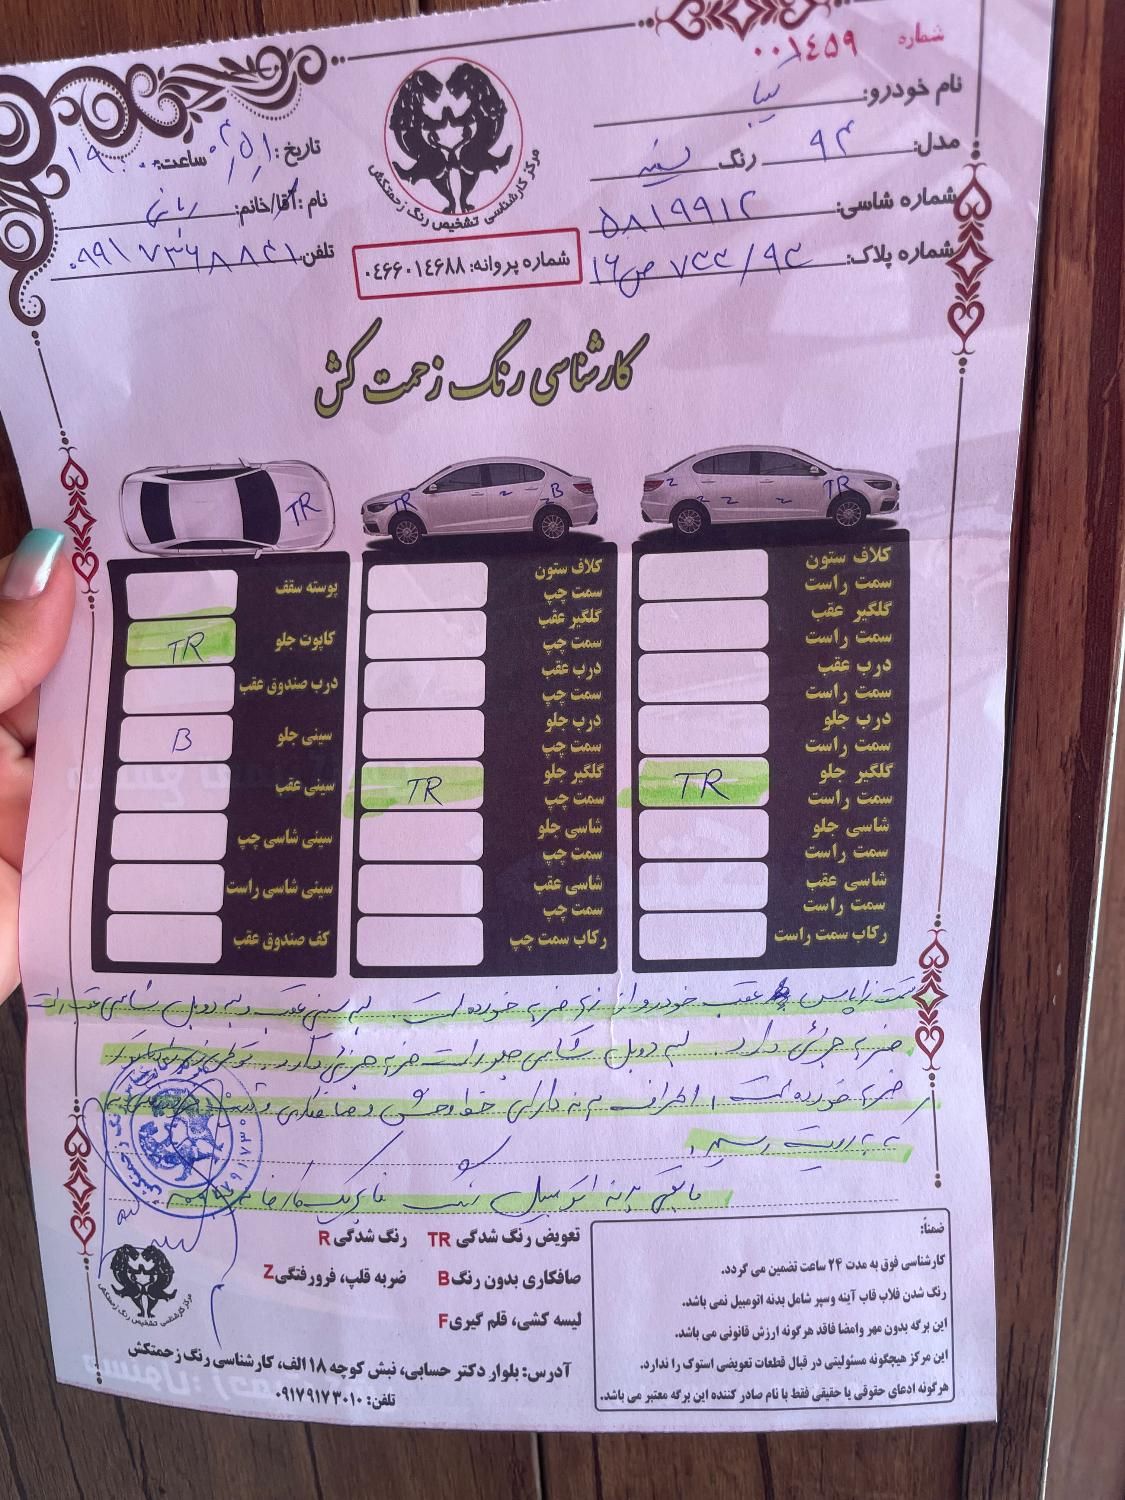 شماره ۰۰۱۴۵۹
نام خودرو: تیبا
مدل: ۹۴ رنگ سفید
شماره شاسی: ۵۸۱۹۹۱۲
شماره پلاک:
تاریخ: ساعت: ۱۹:۰۰
نام: آقا/خانم:
تلفن:
مرکز کارشناسی تشخیص رنگ زحمتکش
شماره پروانه: ۰٤٦٦٠١٤٦٨٨
کارشناسی رنگ زحمت کش
TR
TR Z Z B
Z Z Z Z TR
کلاف ستون سمت راست
گلگیر عقب سمت راست
درب عقب سمت راست
درب جلو سمت راست
گلگیر جلو سمت راست TR
شاسی جلو سمت راست
شاسی عقب سمت راست
رکاب سمت راست
کلاف ستون سمت چپ
گلگیر عقب سمت چپ
درب عقب سمت چپ
درب جلو سمت چپ
گلگیر جلو سمت چپ TR
شاسی جلو سمت چپ
شاسی عقب سمت چپ
رکاب سمت چپ
پوسته سقف
کاپوت جلو TR
درب صندوق عقب
سینی جلو B
سینی عقب
سینی شاسی چپ
سینی شاسی راست
کف صندوق عقب
عقب خودرو از زیر ضربه خورده است. لبه سینی عقب و لبه دوبل شاسی عقب راست
ضربه جزئی دارد. لبه دوبل شاسی جلو راست ضربه جزئی دارد.
ضربه خورده است. اطراف بدنه دارای خط و خش و صافکاری
به رویت رسید.
مابقی بدنه اتومبیل رنگ فابریک کارخانه
تعویض رنگ شدگی TR رنگ شدگی R
صافکاری بدون رنگ B ضربه قلپ، فرورفتگی Z
لیسه کشی، قلم گیری F
ضمناً:
کارشناسی فوق به مدت ۲۴ ساعت تضمین می گردد.
رنگ شدن فلاب قاب آینه وسپر شامل بدنه اتومبیل نمی باشد.
این برگه بدون مهر وامضا فاقد هرگونه ارزش قانونی می باشد.
این مرکز هیچگونه مسئولیتی در قبال قطعات تعویضی استوک را ندارد.
هرگونه ادعای حقوقی یا حقیقی فقط با نام صادر کننده این برگه معتبر می باشد.
مرکز کارشناسی رنگ زحمتکش
آدرس: بلوار دکتر حسابی، نبش کوچه ۱۸ الف، کارشناسی رنگ زحمتکش
تلفن: ۰۹۱۷۹۱۷۳۰۱۰